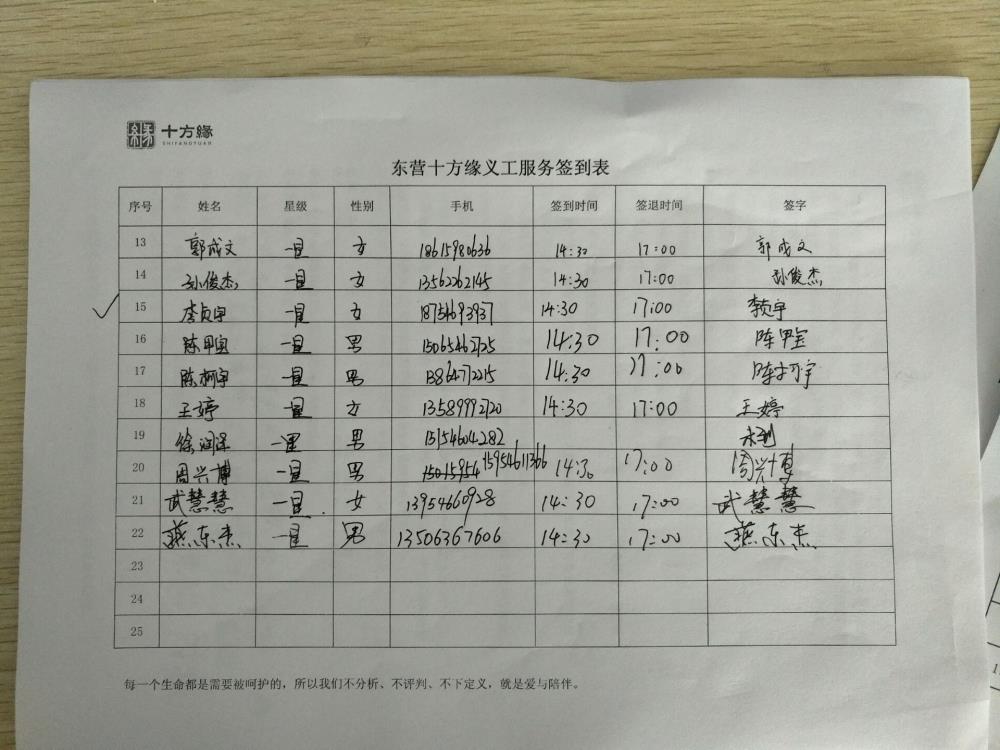 十方緣
SHIFANGYUAN
东营十方缘义工服务签到表
序号 姓名 星级 性别 手机 签到时间 签退时间 签字
13 郭成文 一星 女 18615980636 14:30 17:00 郭成文
14 孙俊杰 一星 女 13562262145 14:30 17:00 孙俊杰
15 李贞宇 一星 女 18754693937 14:30 17:00 李贞宇
16 陈甲宝 一星 男 15065462725 14:30 17:00 陈甲宝
17 陈柯宇 一星 男 13864772215 14:30 17:00 陈柯宇
18 王婷 一星 女 13589992720 14:30 17:00 王婷
19 徐润泽 一星 男 15154604282 未到
20 周兴博 一星 男 15954611366 14:30 17:00 周兴博
21 武慧慧 一星 女 13954660928 14:30 17:00 武慧慧
22 燕东杰 一星 男 13506367606 14:30 17:00 燕东杰
23
24
25
每一个生命都是需要被呵护的，所以我们不分析、不评判、不下定义，就是爱与陪伴。